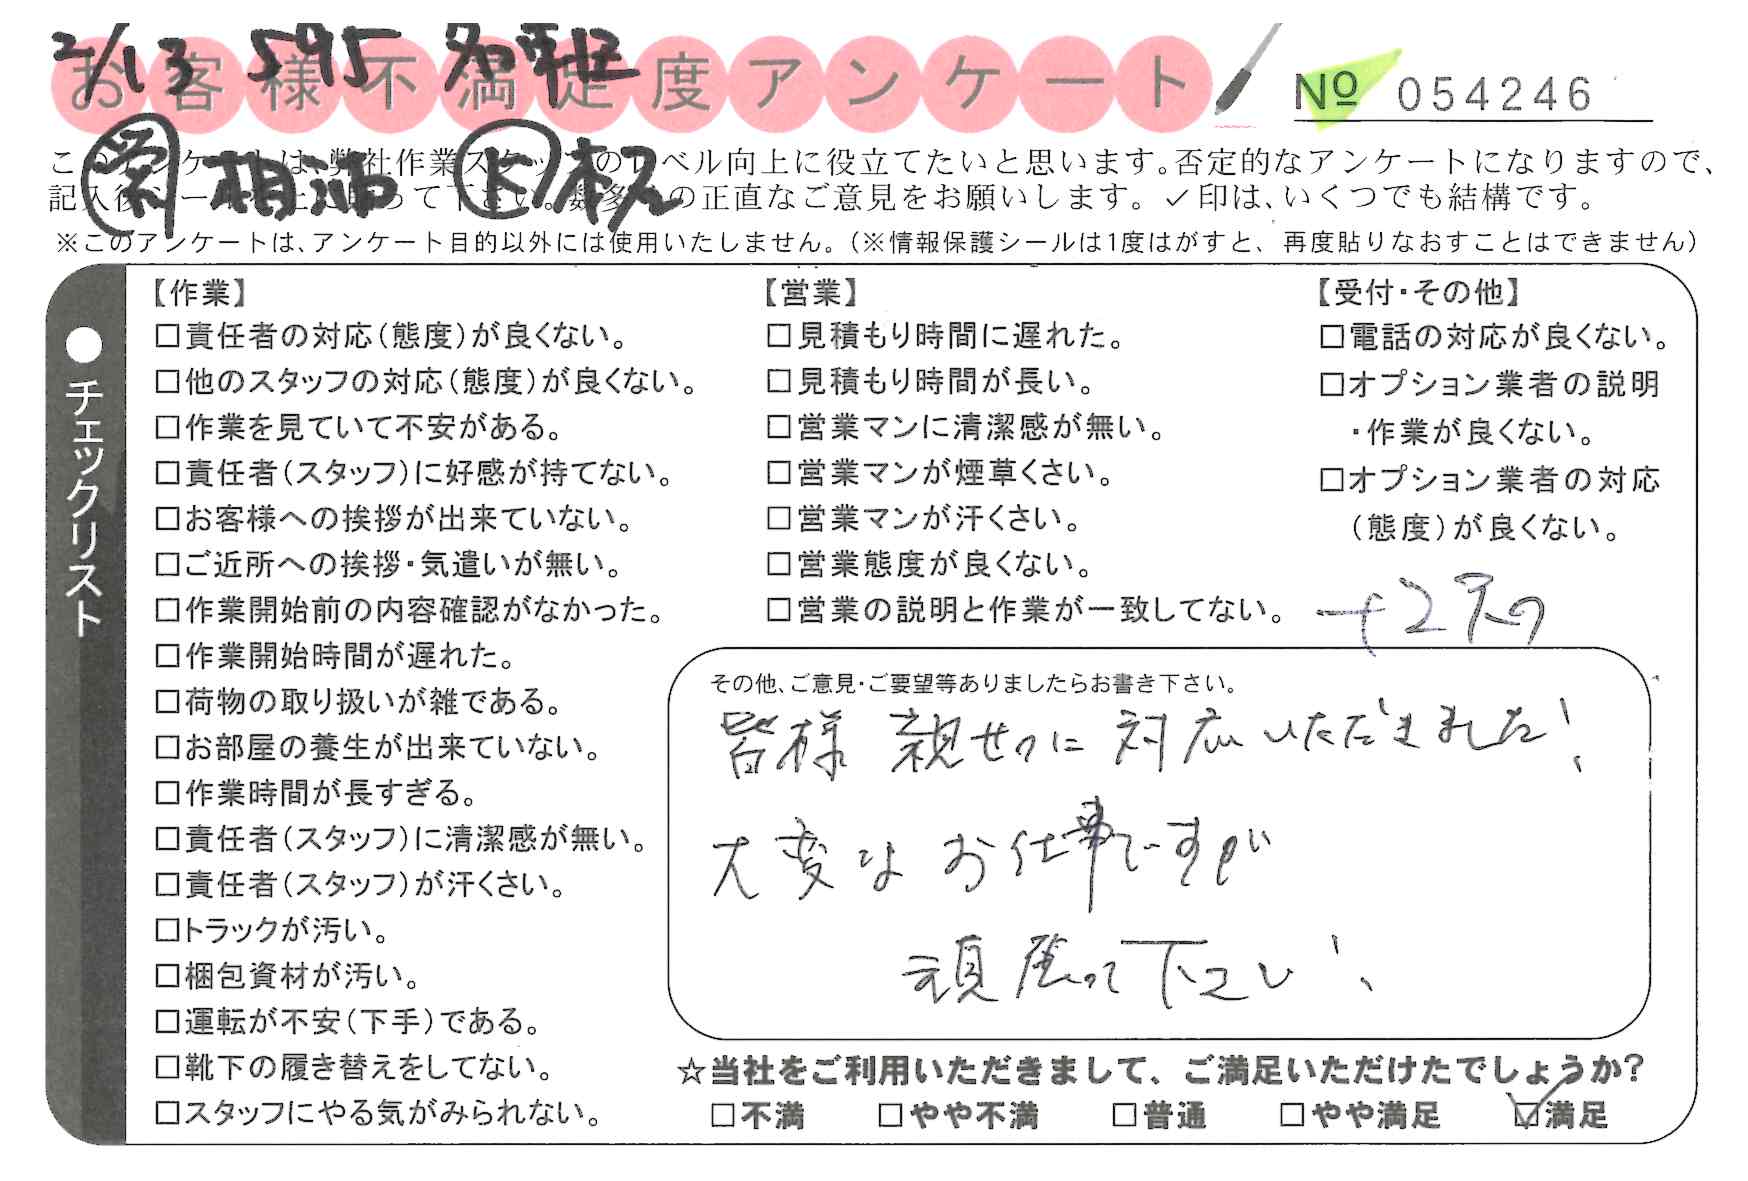 2/13 595
お客様不満足度アンケート
№ 054246
このアンケートは、弊社作業スタッフのレベル向上に役立てたいと思います。否定的なアンケートになりますので、
記入後シールを上に貼って下さい。数多くの正直なご意見をお願いします。✓印は、いくつでも結構です。
※このアンケートは、アンケート目的以外には使用いたしません。（※情報保護シールは1度はがすと、再度貼りなおすことはできません）
●チェックリスト
【作業】
□責任者の対応（態度）が良くない。
□他のスタッフの対応（態度）が良くない。
□作業を見ていて不安がある。
□責任者（スタッフ）に好感が持てない。
□お客様への挨拶が出来ていない。
□ご近所への挨拶・気遣いが無い。
□作業開始前の内容確認がなかった。
□作業開始時間が遅れた。
□荷物の取り扱いが雑である。
□お部屋の養生が出来ていない。
□作業時間が長すぎる。
□責任者（スタッフ）に清潔感が無い。
□責任者（スタッフ）が汗くさい。
□トラックが汚い。
□梱包資材が汚い。
□運転が不安（下手）である。
□靴下の履き替えをしてない。
□スタッフにやる気がみられない。
【営業】
□見積もり時間に遅れた。
□見積もり時間が長い。
□営業マンに清潔感が無い。
□営業マンが煙草くさい。
□営業マンが汗くさい。
□営業態度が良くない。
□営業の説明と作業が一致してない。
【受付・その他】
□電話の対応が良くない。
□オプション業者の説明
・作業が良くない。
□オプション業者の対応
（態度）が良くない。
その他、ご意見・ご要望等ありましたらお書き下さい。
皆様 親切に対応いただきました！
大変なお仕事ですが
頑張って下さい！
☆当社をご利用いただきまして、ご満足いただけたでしょうか？
□不満 □やや不満 □普通 □やや満足 ☑満足